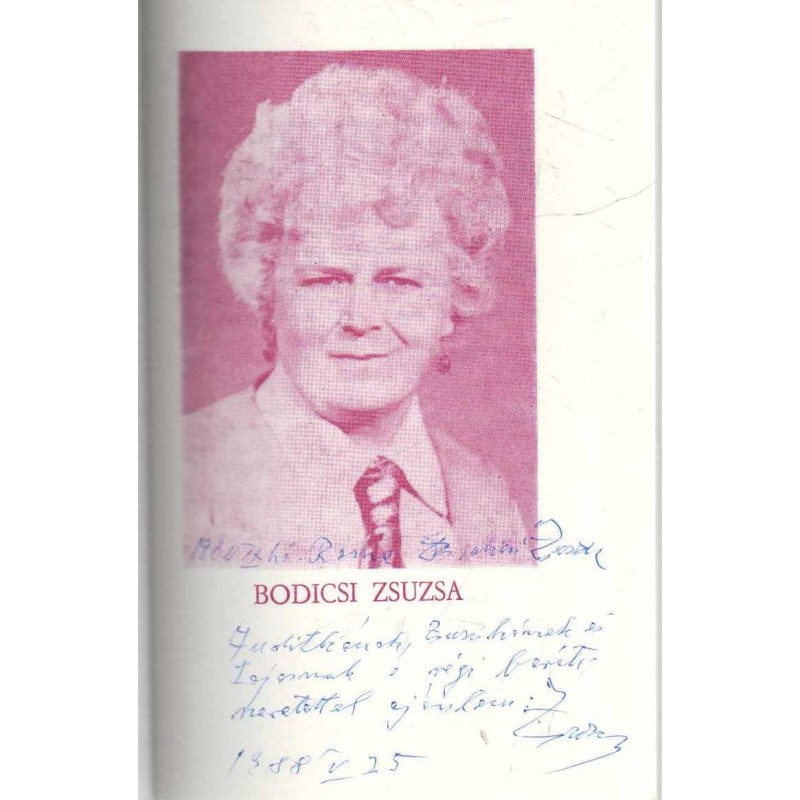 1960 IX hó. Roma Bodicsi Zsuzsa
BODICSI ZSUZSA
Juditkának, Zsuzsikának és
Lajosnak a régi baráti
szeretettel ajánlom:
Zsuzsa
1988 V 25